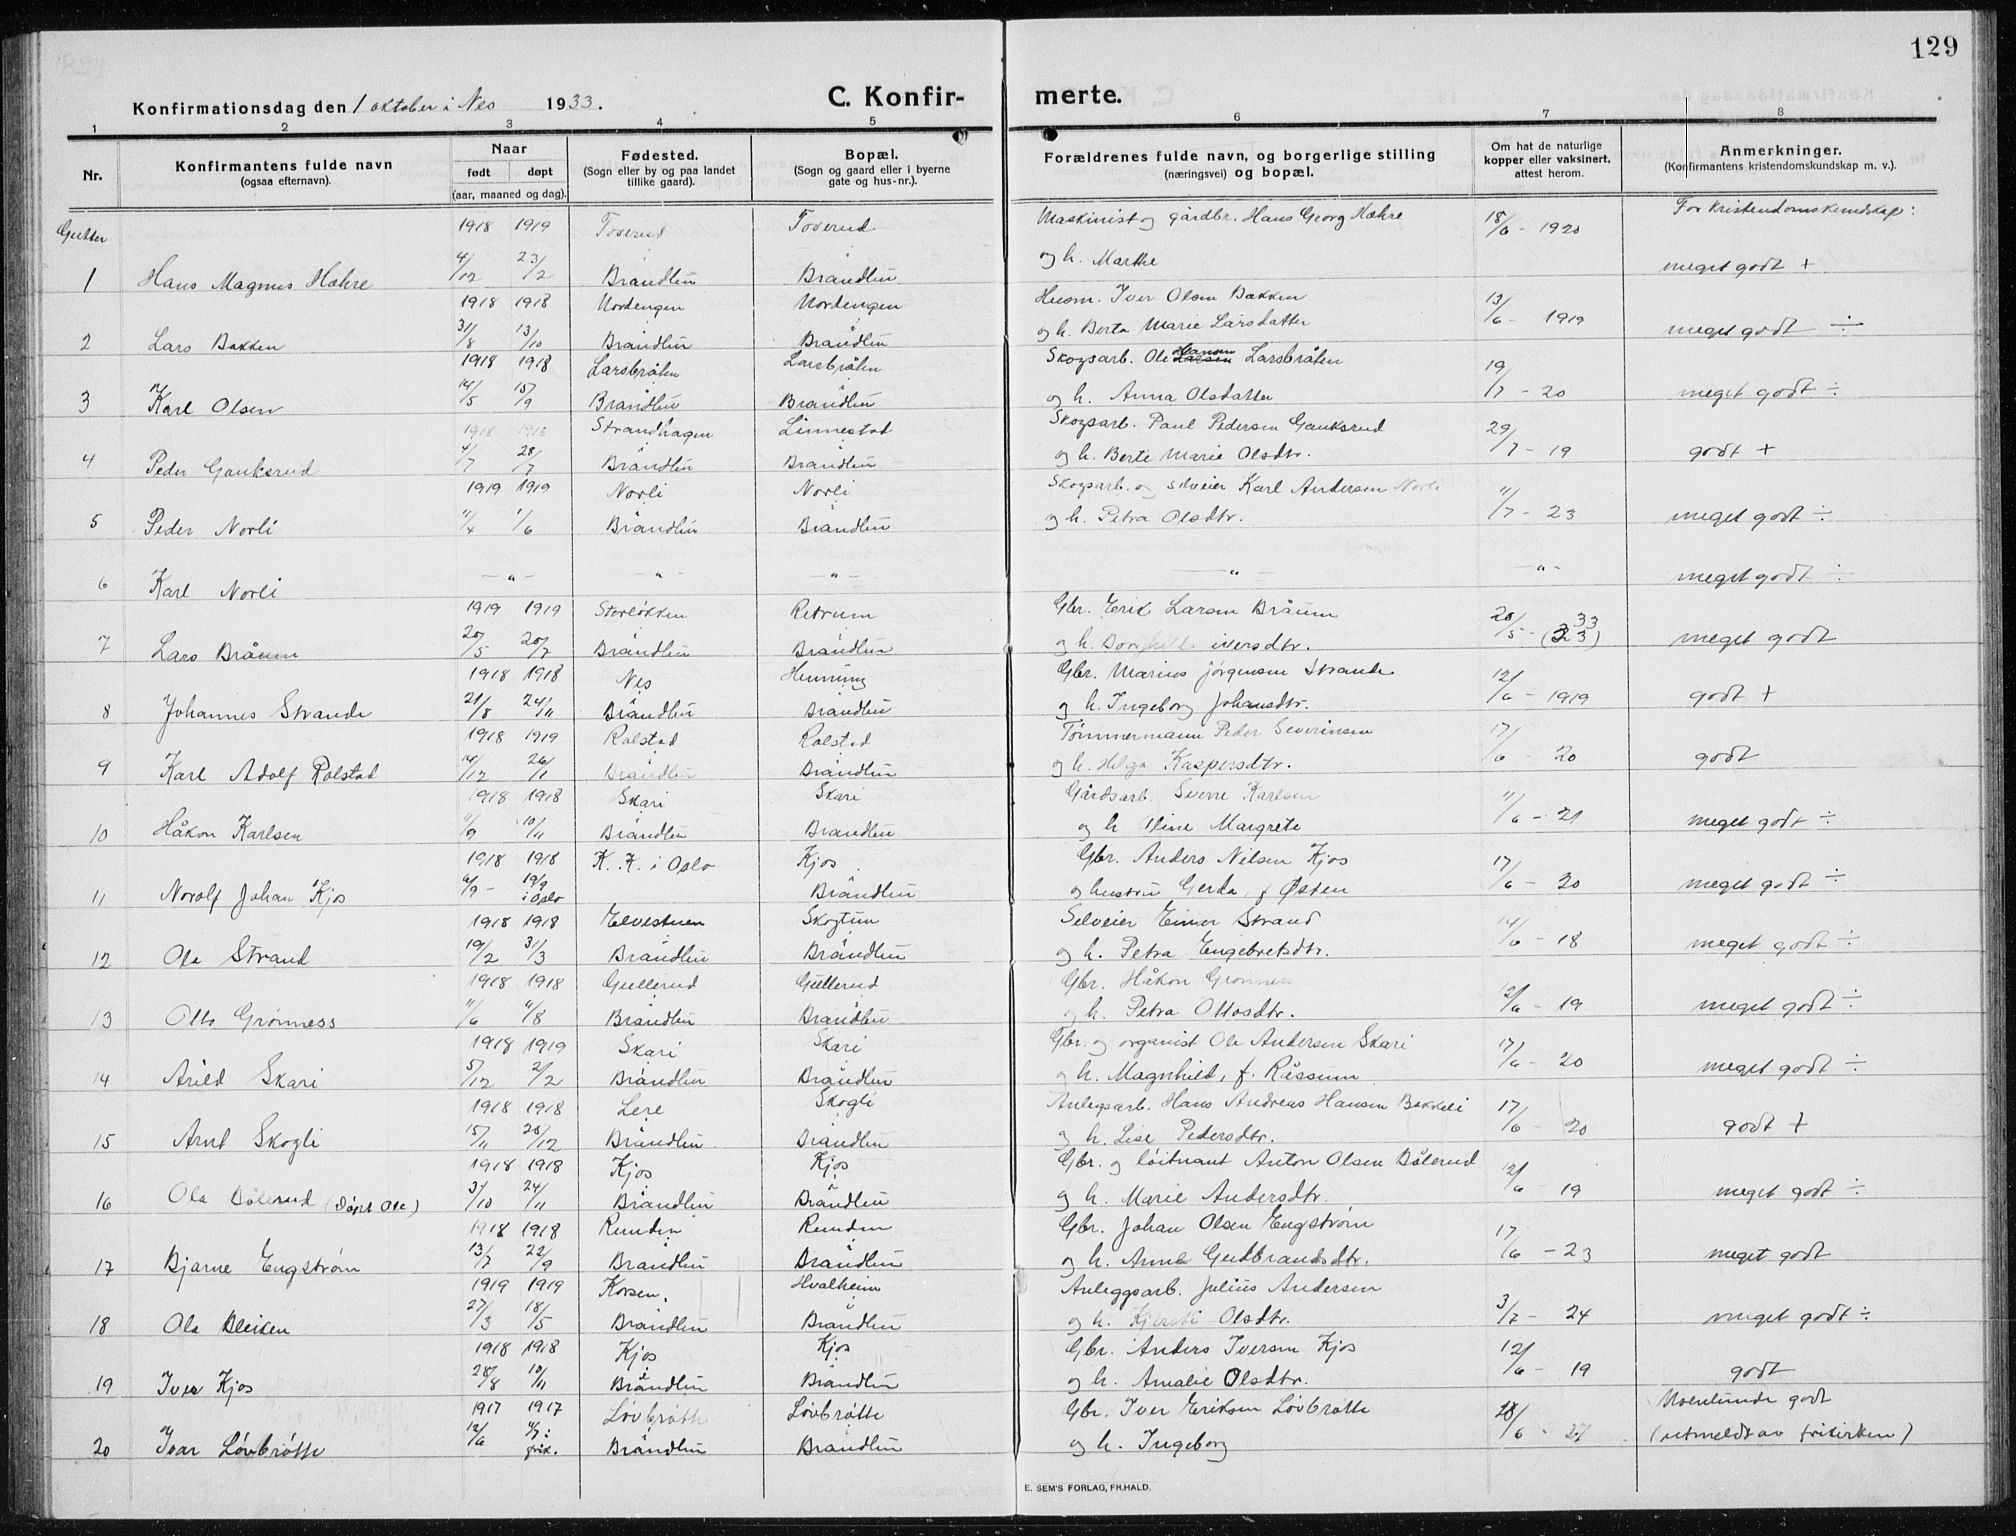 129
Konfirmationsdag den 1 oktober i Nes 1933. C. Konfir- merte.
1 2 3 4 5 6 7 8
Nr. Konfirmantens fulde navn (ogsaa efternavn). Naar født døpt (aar, maaned og dag). Fødested. (Sogn eller by og paa landet tillike gaard). Bopæl. (Sogn og gaard eller i byerne gate og hus-nr.). Forældrenes fulde navn, og borgerlige stilling (næringsvei) og bopæl. Om hat de naturlige kopper eller vaksinert, attest herom. Anmerkninger. (Konfirmantens kristendomskundskap m. v.).
Gutter 1918 1919 Toverud Toverud Maskinist og gårdbr. Hans Georg Hæhre 18/6 - 1920 For Kristendomskundskap:
1 Hans Magnus Hæhre 4/12 23/2 Brandbu Brandbu og h. Marthe meget godt +
1918 1918 Nordengen Nordengen Husm. Iver Olsen Bakken 13/6 - 1919
2 Lars Bakken 31/8 13/10 Brandbu Brandbu og h. Berta Marie Larsdatter meget godt ÷
1918 1918 Larsbråten Larsbråten Skogsarb. Ole Hansen Larsbråten 19/7 - 20
3 Karl Olsen 14/5 15/9 Brandbu Brandbu og h. Anna Olsdatter meget godt ÷
1918 1918 Strandhagen Linnestad Skogsarb. Paul Pedersen Gauksrud 29/7 - 19
4 Peder Gauksrud 4/7 28/7 Brandbu Brandbu og h. Berte Marie Olsdtr. godt +
1919 1919 Norli Norli Skogsarb. og selveier Karl Andersen Norli 11/7 - 23
5 Peder Norli 11/4 1/6 Brandbu Brandbu og h. Petra Olsdtr. meget godt ÷
6 Karl Norli - " - - " - - " - - " - - " - meget godt ÷
1919 1919 Storløkken Retrum Gbr. Erik Larsen Bråum 20/5 - (33)
7 Lars Bråum 20/5 20/7 Brandbu Brandbu og h. Borghild iversdtr. meget godt
1918 1918 Nes Henning Gbr. Marius Jørgensen Strande 12/6 - 1919
8 Johannes Strande 21/8 24/11 Brandbu Brandbu og h. Ingeborg Johansdtr. godt +
1918 1919 Rolstad Rolstad Tømmermann Peder Severinsen 17/6 - 20
9 Karl Adolf Rolstad 14/12 26/1 Brandbu Brandbu og h. Helga Kaspersdtr. godt
1918 1918 Skari Skari Gårdsarb. Sverre Karlsen 11/6 - 21
10 Håkon Karlsen 11/9 10/11 Brandbu Brandbu og h Oline Margrete meget godt ÷
1918 1918 K. K. i Oslo Kjos Gbr. Anders Nilsen Kjos 17/6 - 20
11 Norolf Johan Kjos 6/9 - 19/9 i Oslo Brandbu og hustru Gerda, f Østen meget godt ÷
1918 1918 Elvestuen Skogtun Selveier Einar Strand 14/6 - 18
12 Ola Strand 19/2 31/3 Brandbu Brandbu og h. Petra Engebretsdtr. meget godt ÷
1918 1918 Gullerud Gullerud Gbr. Håkon Grønnes 12/6 - 19
13 Otto Grønness 11/6 11/8 Brandbu Brandbu og h. Petra Ottosdtr. meget godt ÷
1918 1919 Skari Skari Gbr. og organist Ole Andersen Skari 17/6 - 20
14 Arild Skari 5/12 2/2 Brandbu Brandbu og h. Magnhild, f. Råssum meget godt ÷
1918 1918 Lere Skogli Anlegsarb. Hans Andreas Hansen Bakkeli 17/6 - 20
15 Arnt Skogli 15/11 26/12 Brandbu Brandbu og h. Lise Pedersdtr. godt +
1918 1918 Kjos Kjos Gbr. og løitnant Anton Olsen Bålerud 12/6 - 19
16 Ola Bålerud (Døpt Ole) 3/10 24/11 Brandbu Brandbu og h. Marie Andersdtr. meget godt ÷
1918 1918 Runden Runden Gbr. Johan Olsen Engstrøm 17/6 - 23
17 Bjarne Engstrøm 13/7 22/9 Brandbu Brandbu og h. Anna Gudbrandsdtr. meget godt
1919 1919 Korsen. Hvalheim Anleggsarb. Julius Andersen 3/7 - 24
18 Ola Bleiken 27/3 18/5 Brandbu Brandbu og h. Kjersti Olsdtr. meget godt ÷
1918 1918 Kjos Kjos Gbr. Anders Iversen Kjos 12/6 - 19
19 Iver Kjos 28/8 10/11 Brandbu Brandbu og h. Amalie Olsdtr. godt
1917 1917 Løvbråtte Løvbråtte Gbr. Iver Eriksen Løvbråtte 28/6 - 27 Utvilsomt godt
20 Ivar Løvbråtte 12/6 Brandbu Brandbu og h. Ingeborg (utmeldt av frikirken)
E. SEM'S FORLAG, FR.HALD.